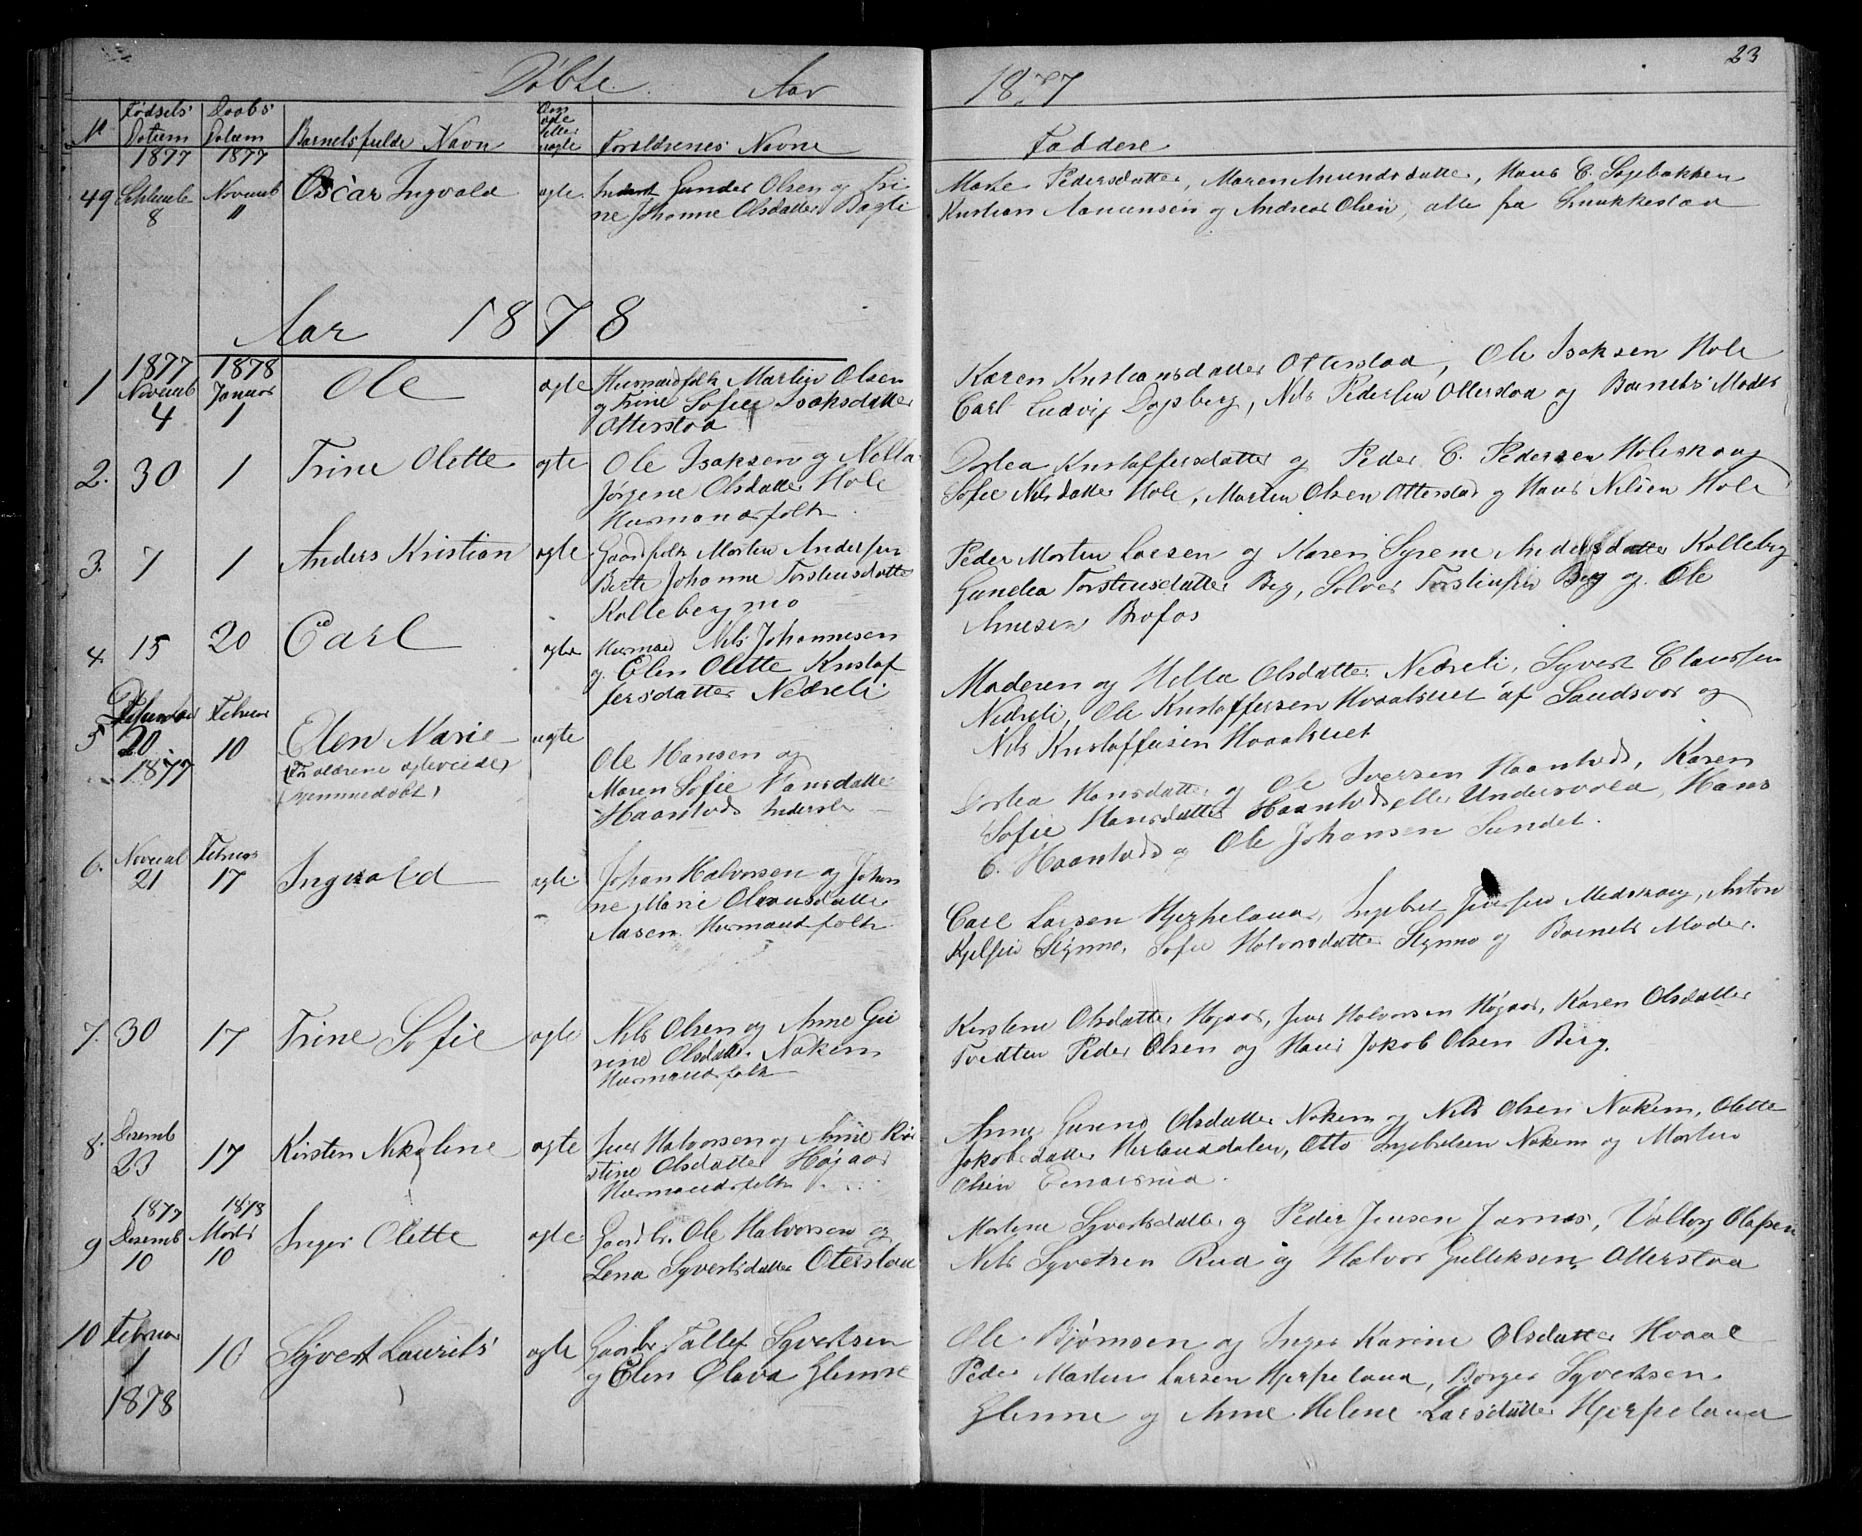 Döbte. Aar 1877 23
N Fødsels Datum 1877 Daabs Datum 1877 Barnets fulde Navn Om ægte eller uægte Forældrenes Navne Faddere
49 Septemb 8 Novemb 11 Oscar Ingvald ægte Inderst Gunder Olsen og Tri
ne Johanne Olsdatter Bagli
Pedersdatter, Maren Amundsdatter, Hans C. Sagbakken
Kristian Aamunsen og Andreas Olsen, alle fra Snukkestad
Aar 1878
1 1877 Novemb 4 1878 Januar 1 Ole ægte Husmandfolk Martin Olsen
og Trine Sofie Isaksdatter
Otterstad
Karen Kristiansdatter Otterstad, Ole Isaksen Hole
Carl Ludvig Dagsberg, Nils Pedersen Otterstad og Barnets Moder
2. 30 1 Trine Olette ægte Ole Isaksen og Nella
Jørgene Olsdatter Hole
Husmandsfolk
Dortea Kristoffersdatter og Peder C. Pedersen Holeskaug
Sofie Nilsdatter Hole, Martin Olsen Otterstad og Hans Nilsen Hole
3. 7 1 Anders Kristian ægte Gaardfolk Morten Andersen
Berte Johanne Torstensdatter
Kollebergmo
Peder Morten Larsen og Karen Syrene Andersdatter Kolleberg
Gundea Torstensdatter Berg, Solver Torstensen Berg og Ole
Arnesen Brofos
4. 15 20 Carl ægte Husmand Nils Johannesen
og Elen Olette Kristof
fersdatter Nedreli
Moderen og Olsdatter Nedreli, Syvert Claussen
Nedreli, Ole Kristoffersen Hvaalsset af Sandsvær og
Nils Kristoffersen Hvaalsset
5 Desember 20 1877 Februar 10 Elen Marie uægte
(Forældrene
hjemmedøbt)
Ole Hansen og
Maren Sofie Hansdatter
Haantveds
Dortea Hansdatter og Ole Iversen Haantveds, Karen
Sofie Hansdatter Haantveds eller Undersvola, Hans
C. Haantveds og Ole Johansen Sundet.
6. Novemb 21 Februar 17 Ingvald ægte Johan Halvorsen og Johan
ne Marie Olausdatter
Aasen Husmandfolk
Carl Larsen Hjerpeland, Ingebret Iversen Medskaug, Anton
Kjelsen Stynmo, Sofie Halvorsdatter Stynmo og Barnets Moder.
7. 30 17 Trine Sofie ægte Nils Olsen og Anne Gu
rine Olsdatter Nakem
Husmandsfolk
Kirstene Olsdatter Højaas, Iver Halvorsen Højaas, Karen Olsdatter
Tvedten Peder Olsen og Hans Jakob Olsen Berg.
8. Desemb 23 17 Kirsten Nikoline ægte Iver Halvorsen og Anne Kir
stine Olsdatter Højaas
Husmandsfolk
Anne Gurena Olsdatter Nakem og Nils Olsen Nakem, Olette
Jakobsdatter Herlanddalen, Otto Ingebretsen Nakem og Morten
Olsen
9 1877 Desemb 10 1878 Marts 10 Inger Olette ægte Gaardbr. Ole Halvorsen og
Lena Syvertsdatter Oterstad
Martene Syvertsdatter og Peder Jensen Jarnæs, Valborg Olafsen
Nils Syvertsen Rua og Halvor Gulliksen Otterstad
10 Februar 1 1878 10 Syvert Laurits ægte Gaardbr. Tollef Syvertsen
og Elen Olava Glenne
Ole Bjørnsen og Inger Karine Olsdatter Hvaal
Peder Morten Larsen Hjerpeland, Borger Syvertsen
Glenne og Anne Helene Larsdatter Hjerpeland